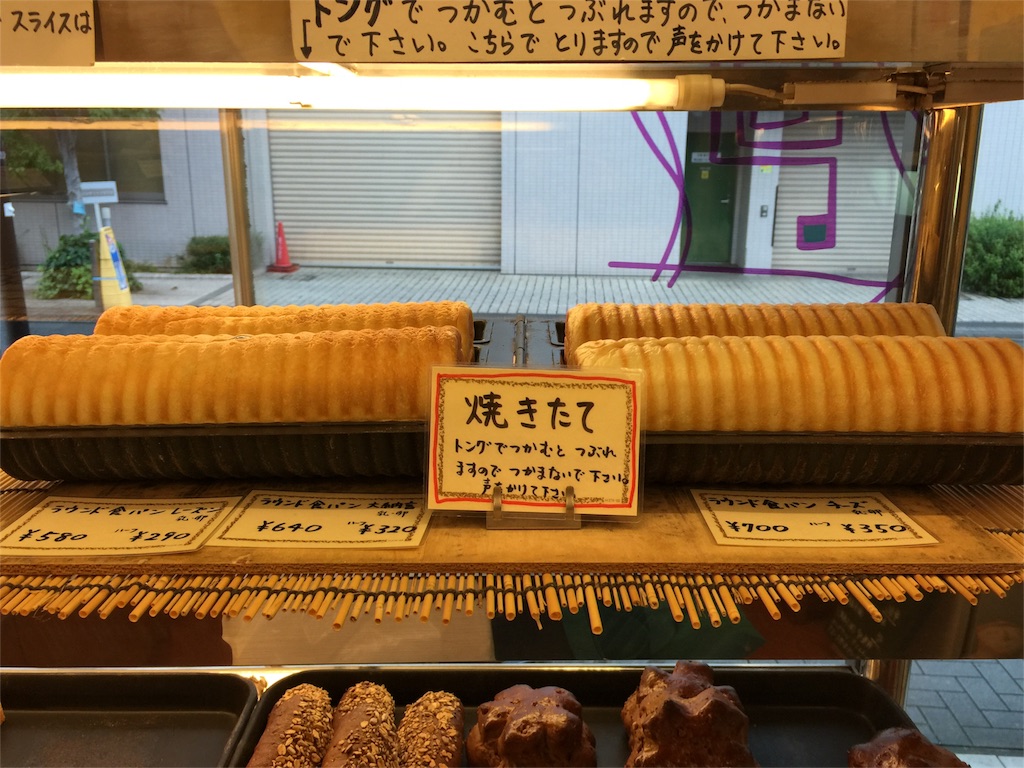 スライスは
トングでつかむとつぶれますので、つかまない
で下さい。こちらでとりますので声をかけて下さい。
焼きたて
トングでつかむと つぶれ
ますので つかまないで下さい。
声をかけて下さい。
ラウンド食パン レーズン
乳・卵
¥580 ハーフ ¥290
ラウンド食パン 大納言
乳・卵
¥640 ハーフ ¥320
ラウンド食パン チーズ
乳・卵
¥700 ハーフ ¥350